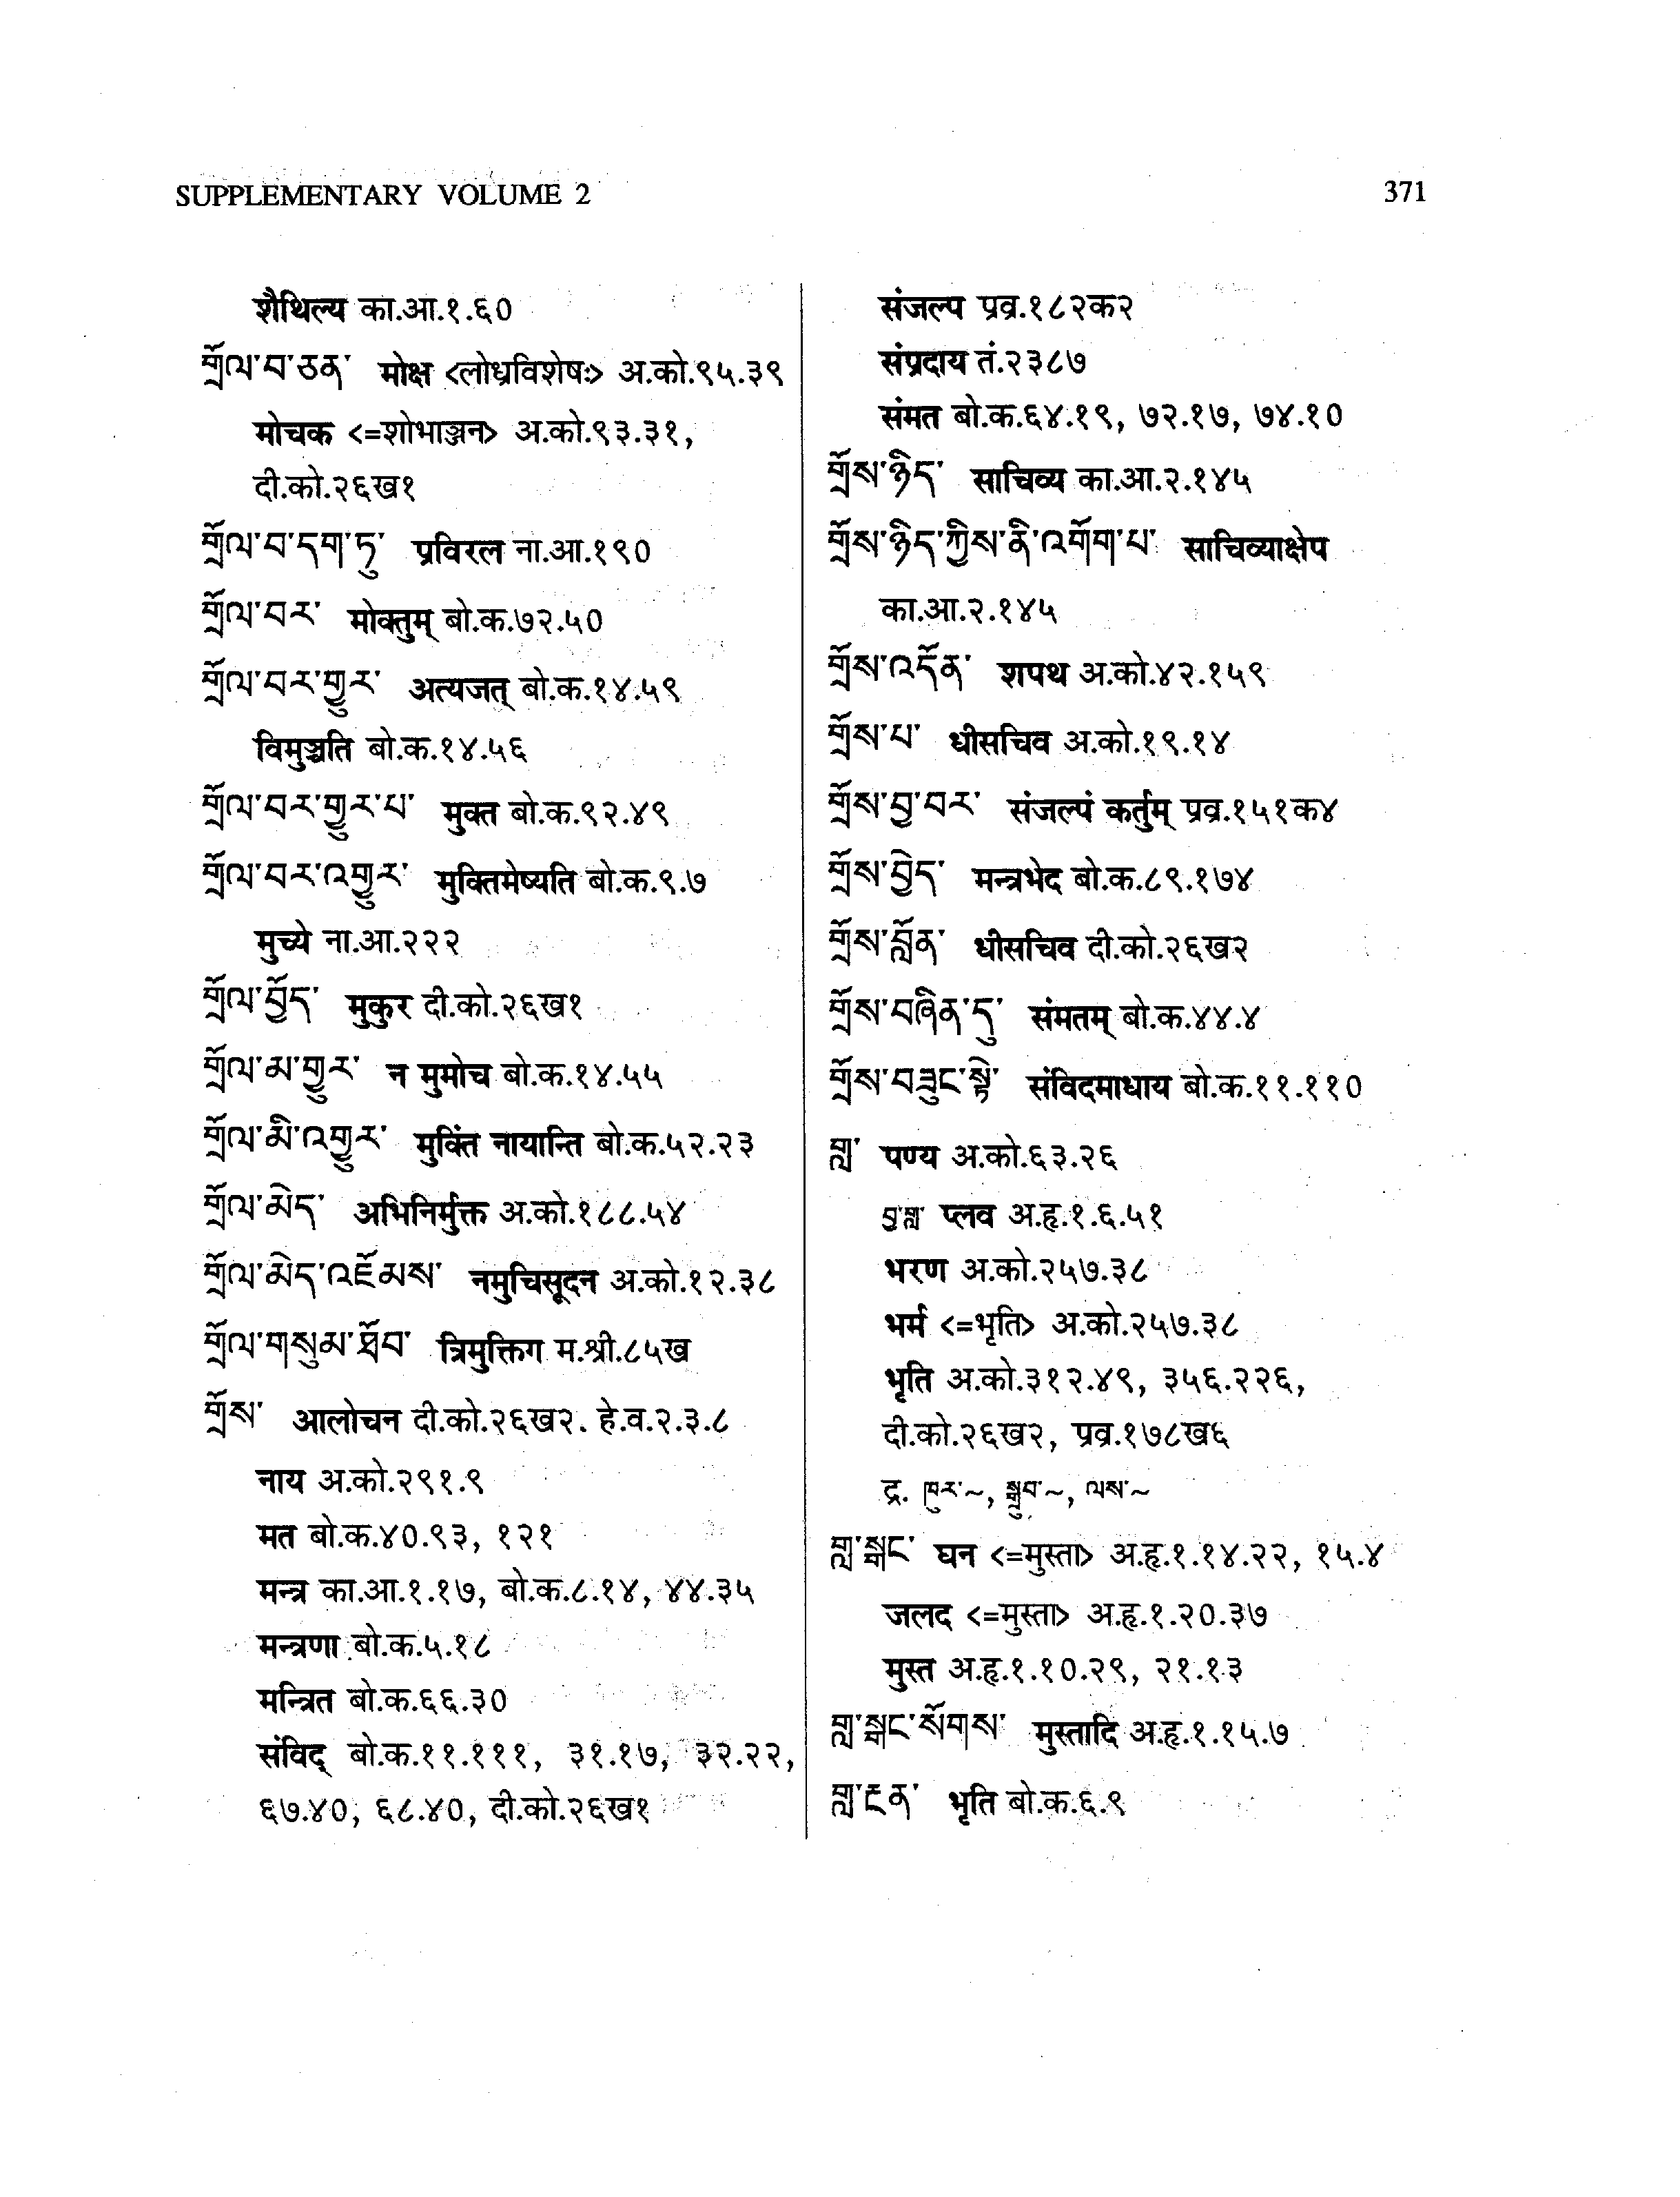 SUPPLEMENTARY VOLUME 2 371
शैथिल्य का.आ.१.६०
གྲོལ་བ་ཅན་ मोक्ष <लोध्रविशेषः> अ.को.९५.३९
मोचक <=शोभाञ्जन> अ.को.९३.३१,
दी.को.२६ख१
གྲོལ་བ་དག་ཏུ་ प्रविरल ना.आ.१९०
གྲོལ་བར་ मोक्तुम् बो.क.७२.५०
གྲོལ་བར་གྱུར་ अत्यजत् बो.क.१४.५९
विमुञ्चति बो.क.१४.५६
གྲོལ་བར་གྱུར་པ་ मुक्त बो.क.९२.४९
གྲོལ་བར་འགྱུར་ मुक्तिमेष्यति बो.क.९.७
मुच्ये ना.आ.२२२
གྲོལ་བྱོད་ मुकुर दी.को.२६ख१
གྲོལ་མ་གྱུར་ न मुमोच बो.क.१४.५५
གྲོལ་མི་འགྱུར་ मुक्तिं नायान्ति बो.क.५२.२३
གྲོལ་མེད་ अभिनिर्मुक्त अ.को.१८८.५४
གྲོལ་མེད་འཇོམས་ नमुचिसूदन अ.को.१२.३८
གྲོལ་གསུམ་ཐོབ་ त्रिमुक्तिग म.श्री.८५ख
གྲོས་ आलोचन दी.को.२६ख२. हे.व.२.३.८
नाय अ.को.२९१.९
मत बो.क.४०.९३, १२१
मन्त्र का.आ.१.१७, बो.क.८.१४, ४४.३५
मन्त्रणा बो.क.५.१८
मन्त्रित बो.क.६६.३०
संविद् बो.क.११.१११, ३१.१७, ३२.२२,
६७.४०, ६८.४०, दी.को.२६ख१
संजल्प प्रव्र.१८२क२
संप्रदाय तं.२३८७
संमत बो.क.६४.१९, ७२.१७, ७४.१०
གྲོས་ཉིད་ साचिव्य का.आ.२.१४५
གྲོས་ཉིད་ཀྱིས་ནི་འགོག་པ་ साचिव्याक्षेप
का.आ.२.१४५
གྲོས་འདོན་ शपथ अ.को.४२.१५९
གྲོས་པ་ धीसचिव अ.को.१९.१४
གྲོས་བྱ་བར་ संजल्पं कर्तुम् प्रव्र.१५१क४
གྲོས་བྱེད་ मन्त्रभेद बो.क.८९.१७४
གྲོས་བློན་ धीसचिव दी.को.२६ख२
གྲོས་བཞིན་དུ་ संमतम् बो.क.४४.४
གྲོས་བཟུང་སྟེ་ संविदमाधाय बो.क.११.११०
གླ་ पण्य अ.को.६३.२६
བྲ་གླ་ प्लव अ.हृ.१.६.५१
भरण अ.को.२५७.३८
भर्म <=भृति> अ.को.२५७.३८
भृति अ.को.३१२.४९, ३५६.२२६,
दी.को.२६ख२, प्रव्र.१७८ख६
द्र. ཁུར་~, སྒྲུབ་~, ལས་~
གླ་སྒང་ घन <=मुस्ता> अ.हृ.१.१४.२२, १५.४
जलद <=मुस्ता> अ.हृ.१.२०.३७
मुस्त अ.हृ.१.१०.२९, २१.१३
གླ་སྒང་སོགས་ मुस्तादि अ.हृ.१.१५.७
གླ་རྔན་ भृति बो.क.६.९